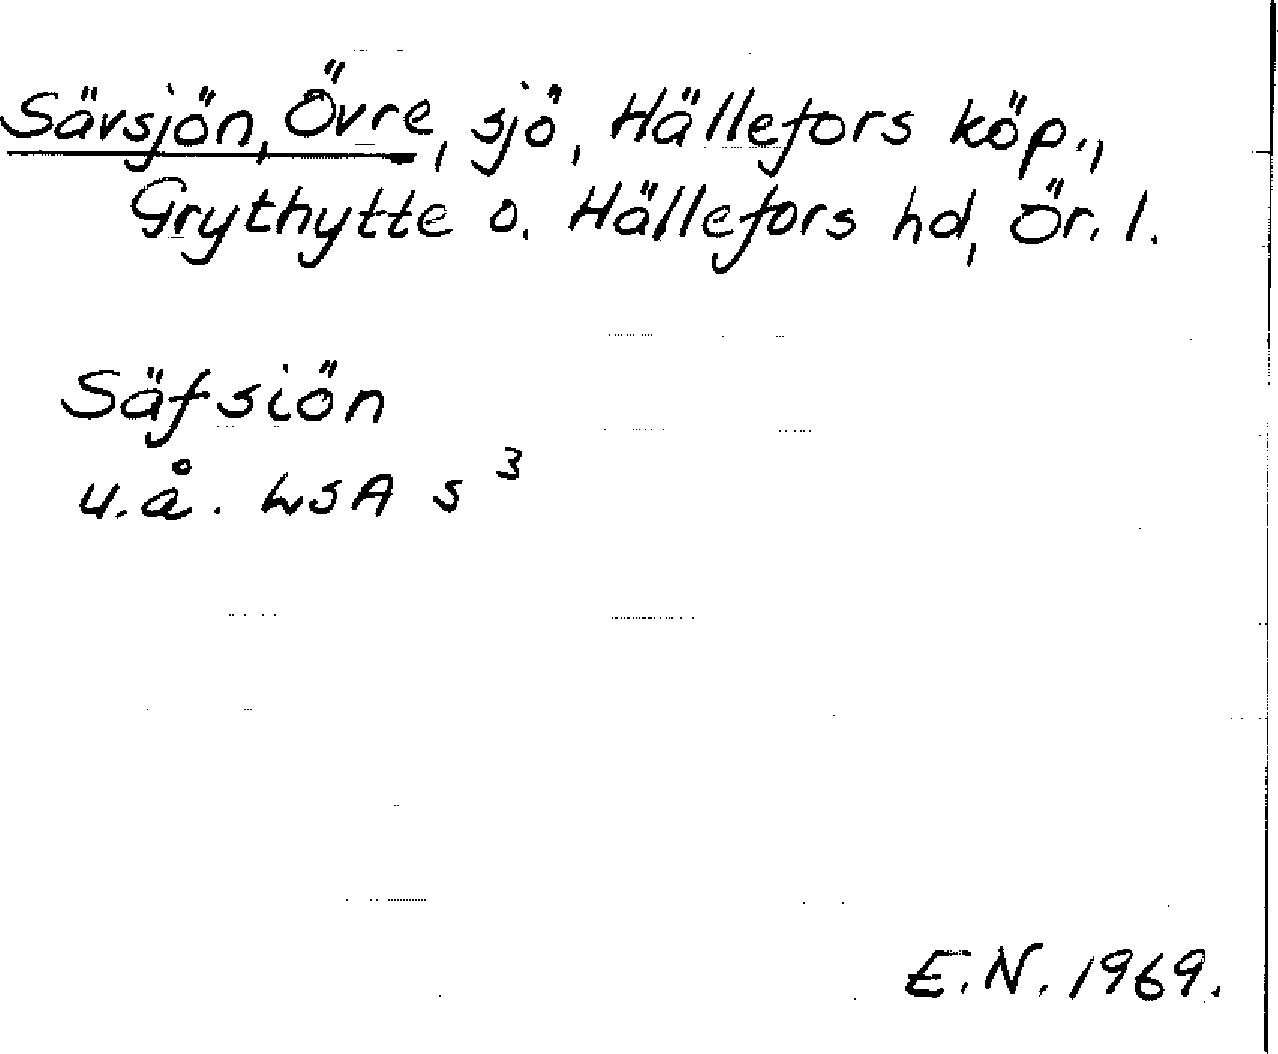 Sävsjön, Övre, sjö, Hällefors köp.,
Grythytte o. Hällefors hd, Ör. l.
Säfsiön
u.å. LSA s 3
E.N. 1969.